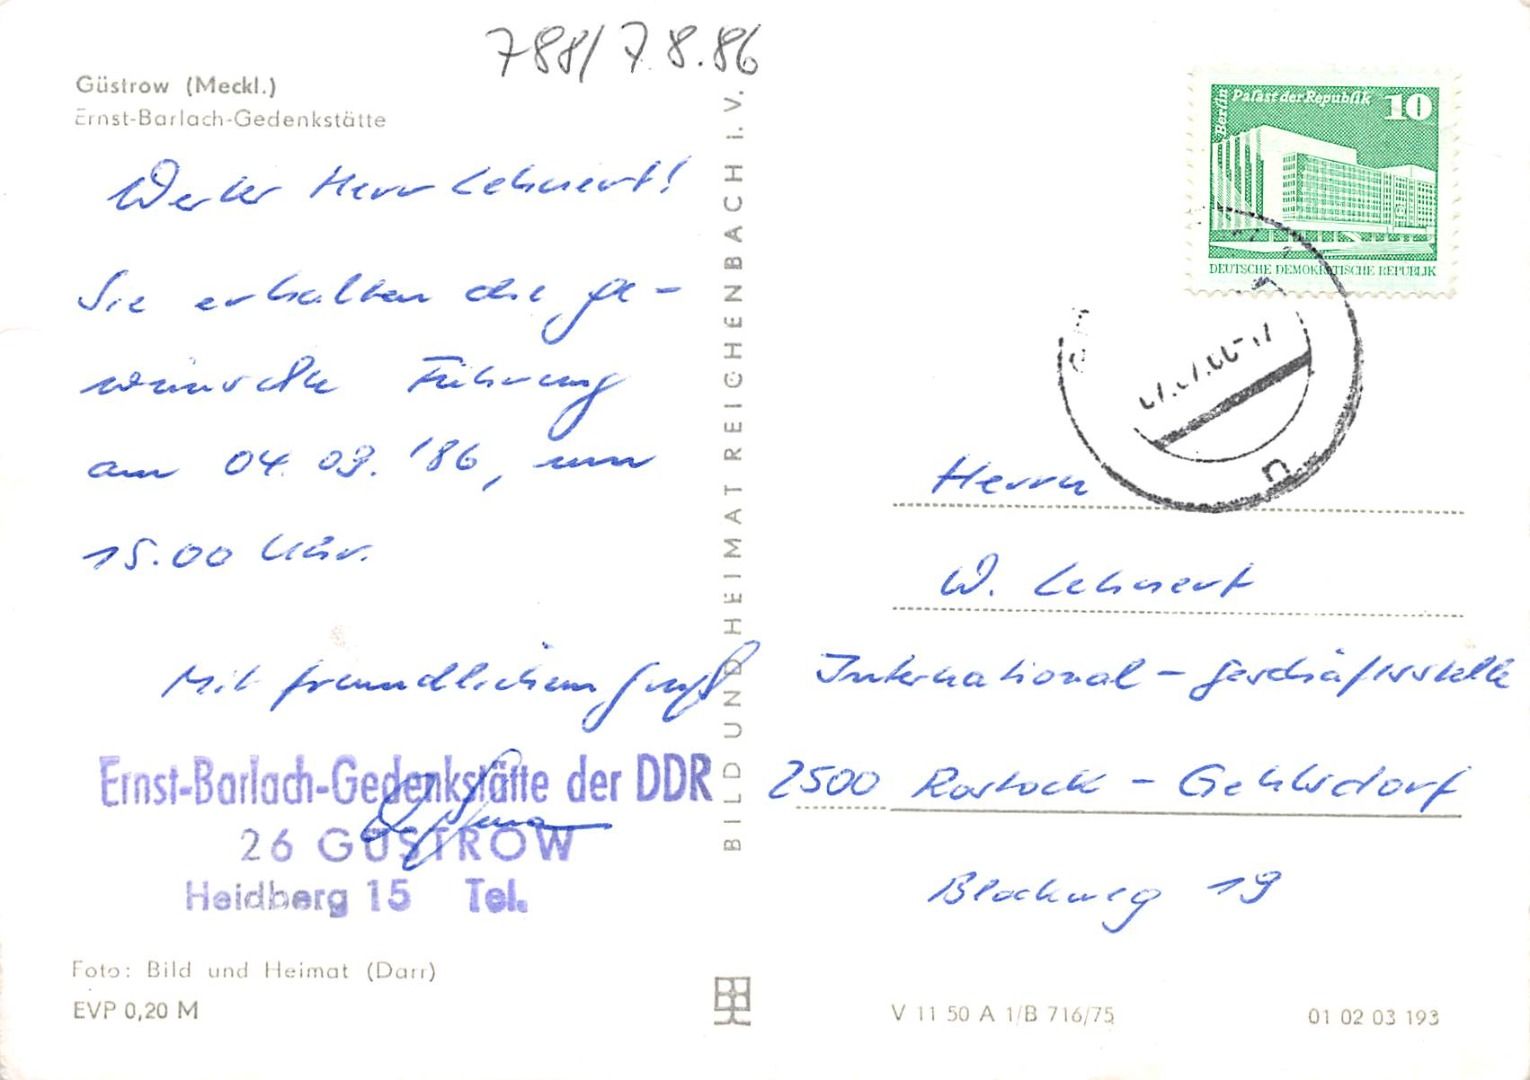 788/7.8.86
Güstrow (Meckl.)
Ernst-Barlach-Gedenkstätte
Werter Herr Lehnert!
Sie erhalten die ge-
wünschte Führung
am 04.09.'86, um
15.00 Uhr.
Mit freundlichem Gruß
Ernst-Barlach-Gedenkstätte der DDR
26 GÜSTROW
Heidberg 15 Tel.
Foto: Bild und Heimat (Darr)
EVP 0,20 M
BILD UND HEIMAT REICHENBACH I. V.
Berlin
Palast der Republik
10
DEUTSCHE DEMOKRATISCHE REPUBLIK
Herrn
W. Lehnert
International-Geschäftsstelle
2500 Rostock - Gehlsdorf
Blockweg 19
V 11 50 A 1/B 716/75
01 02 03 193